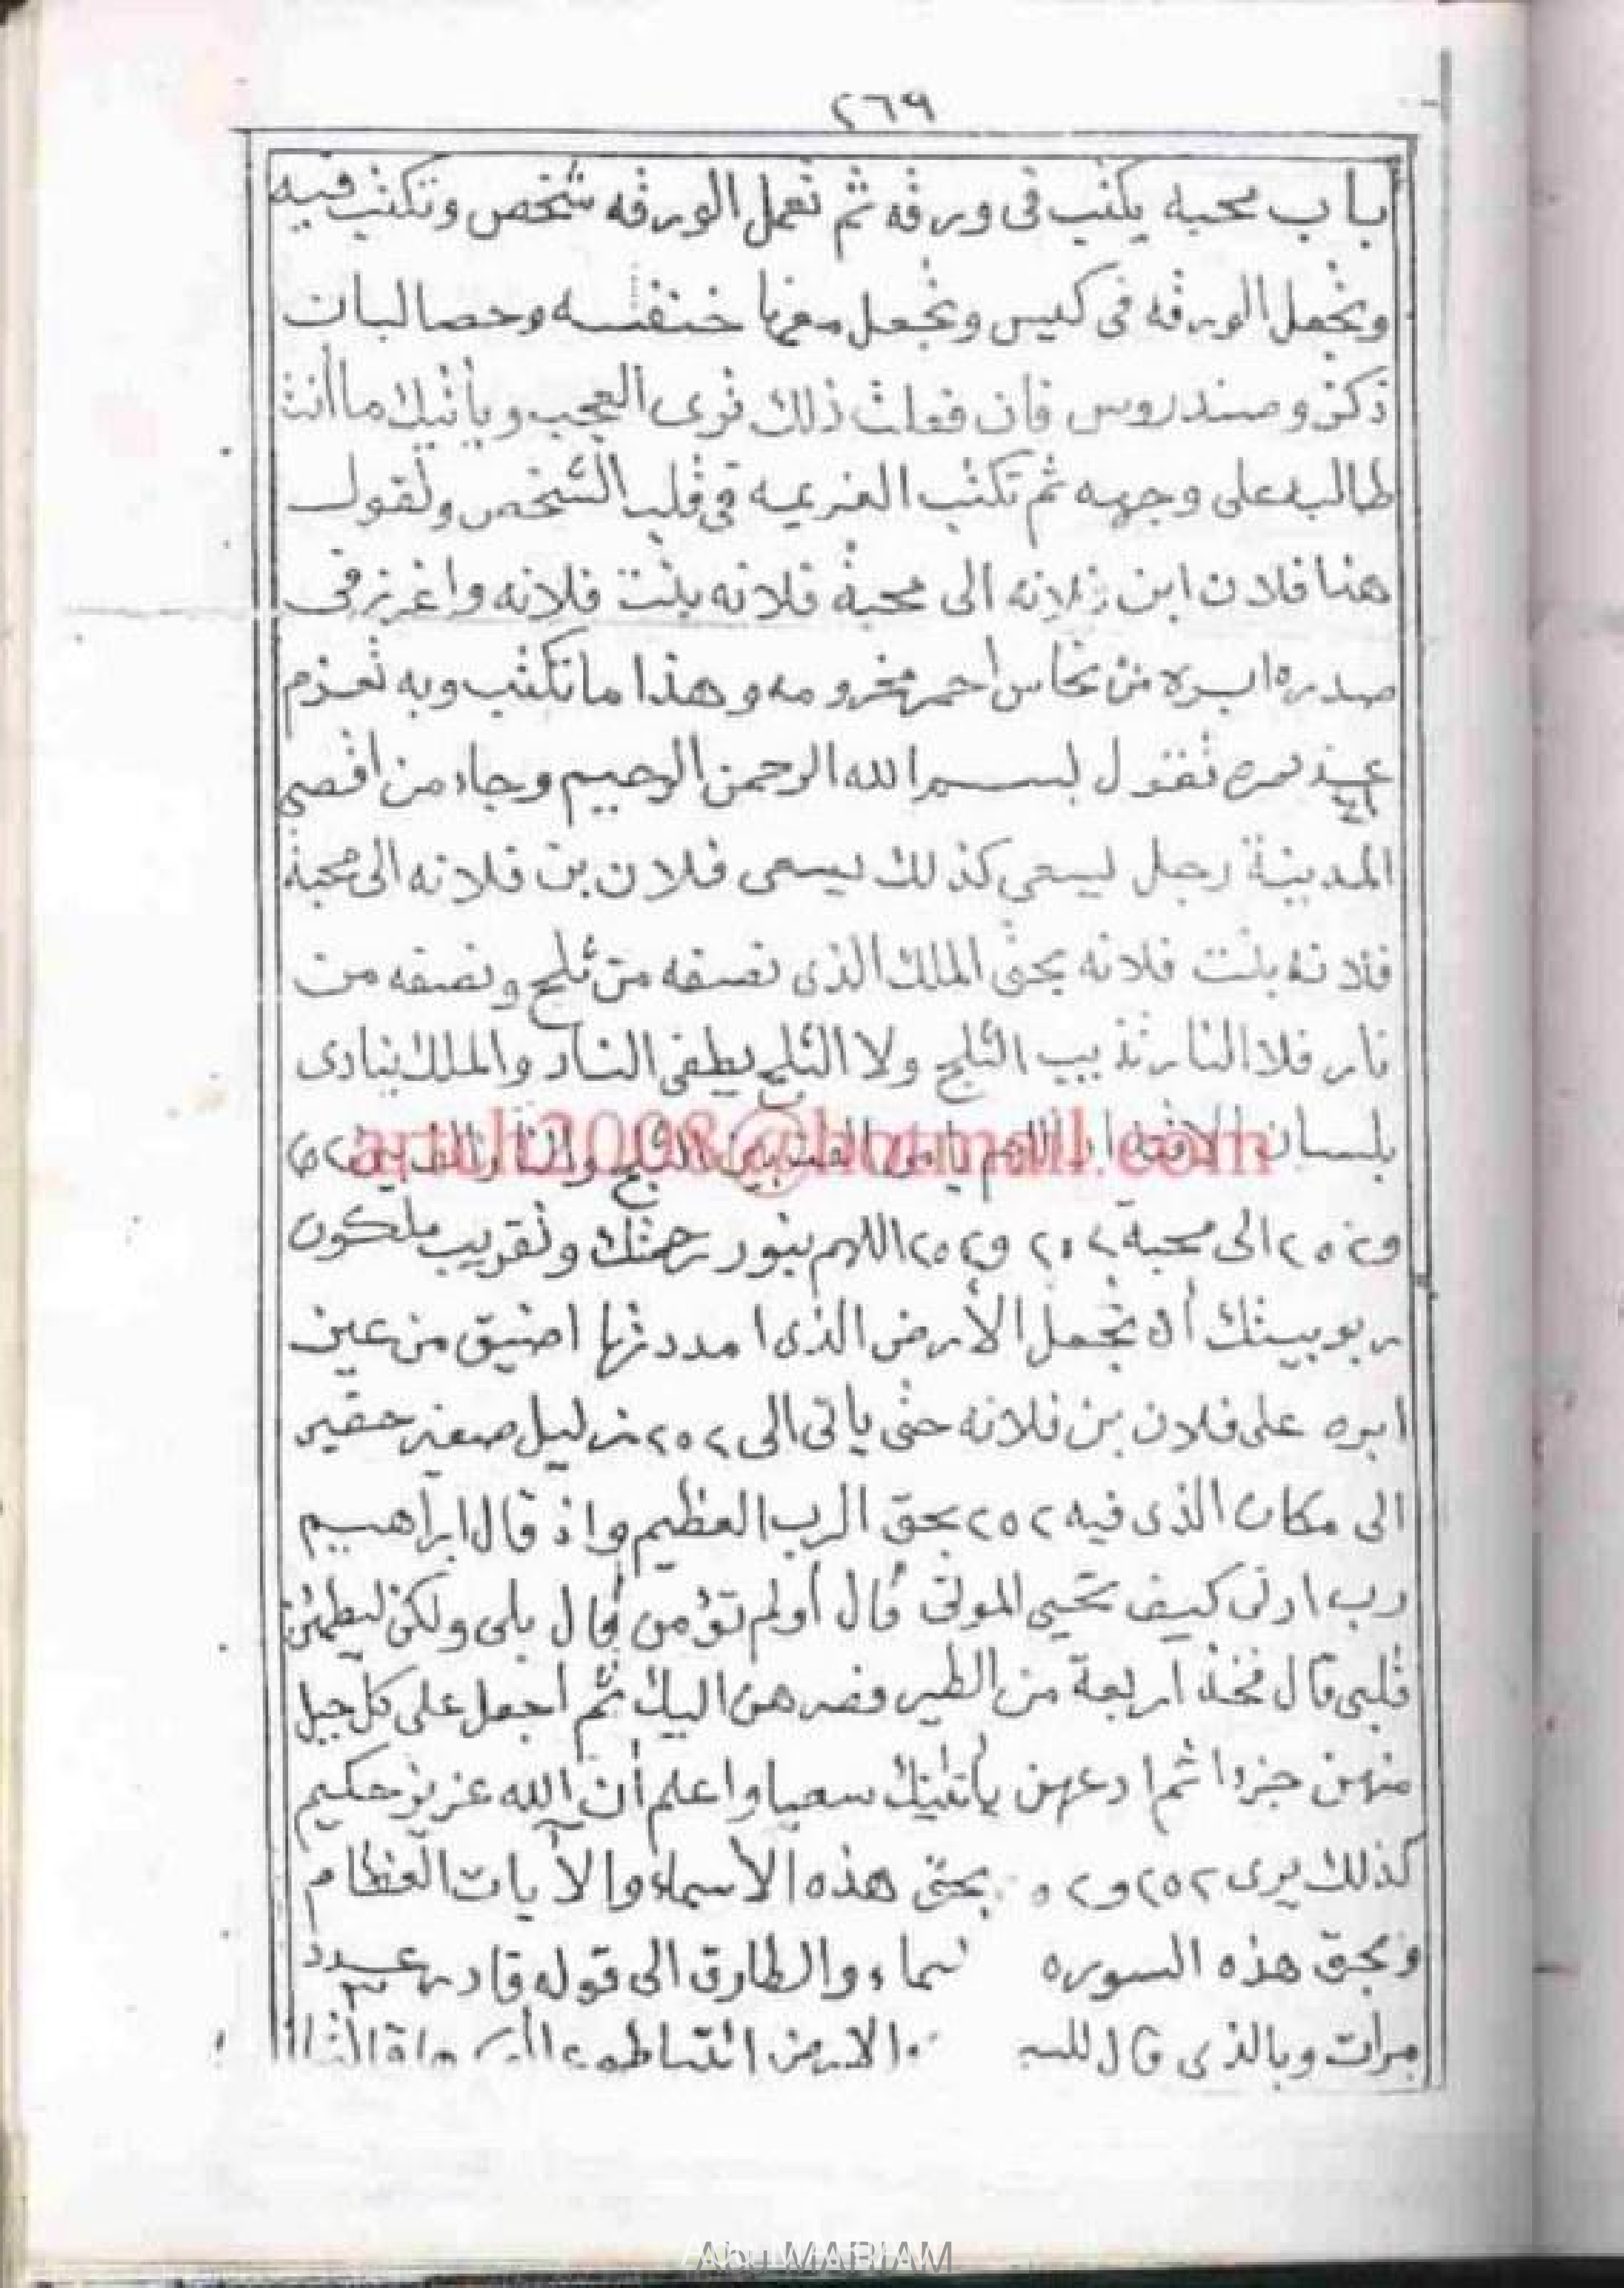 ٢٦٩
باب محبه يكتب فى ورقه ثم تعمل الورقه شخص وتكتب فيه
وتجعل الورقه فى كيس وتجعل معها خنفسه وحصالبان
ذكر وصندروس فان فعلت ذلك ترى العجب ويأتيك ما أنت
طالبه على وجهه ثم تكتب العزيمه فى قلب الشخص وتقول
هنا فلان ابن فلانه الى محبة فلانه بنت فلانه واغرز فى
صدره ابره من نحاس احمر مخرومه وهذا ما تكتب وبه تعزم
تقول بسم الله الرحمن الرحيم وجاء من اقصى
المدينة رجل يسعى كذلك يسعى فلان بن فلانه الى محبة
فلانه بنت فلانه بحق الملك الذى نصفه من ثلج ونصفه من
نار فلا النار تذيب الثلج ولا الثلج يطفى النار والملك ينادى
بلسان اللهم يا من الف بين الثلج والنار الف بين ٢٥
و٢٥٢ الى محبة ٢٥٢ و٢٥٢ اللهم بنور رحمتك وتقريب ملكون
ربوبيتك أن تجعل الأرض الذى امددتها اضيق من عين
ابره على فلان بن فلانه حتى ياتى الى ٢٥٢ ذليل صغير حقير
الى مكان الذى فيه ٢٥٢ بحق الرب العظيم واذ قال ابراهيم
رب ارنى كيف تحيى الموتى قال أولم تؤمن قال بلى ولكن ليطمئن
قلبى قال فخذ اربعة من الطير فصرهن اليك ثم اجعل على كل جبل
منهن جزءا ثم ادعهن يأتينك سعيا واعلم أن الله عزيز حكيم
كذلك يرى ٢٥٢ و٢٥ بحق هذه الأسماء والآيات العظام
وبحق هذه السوره سماء والطارق الى قوله قادر عدد
مرات وبالذى قال للسـ الارض ائتيا طوعا
artch2008@hotmail.com
Abu MARIAM